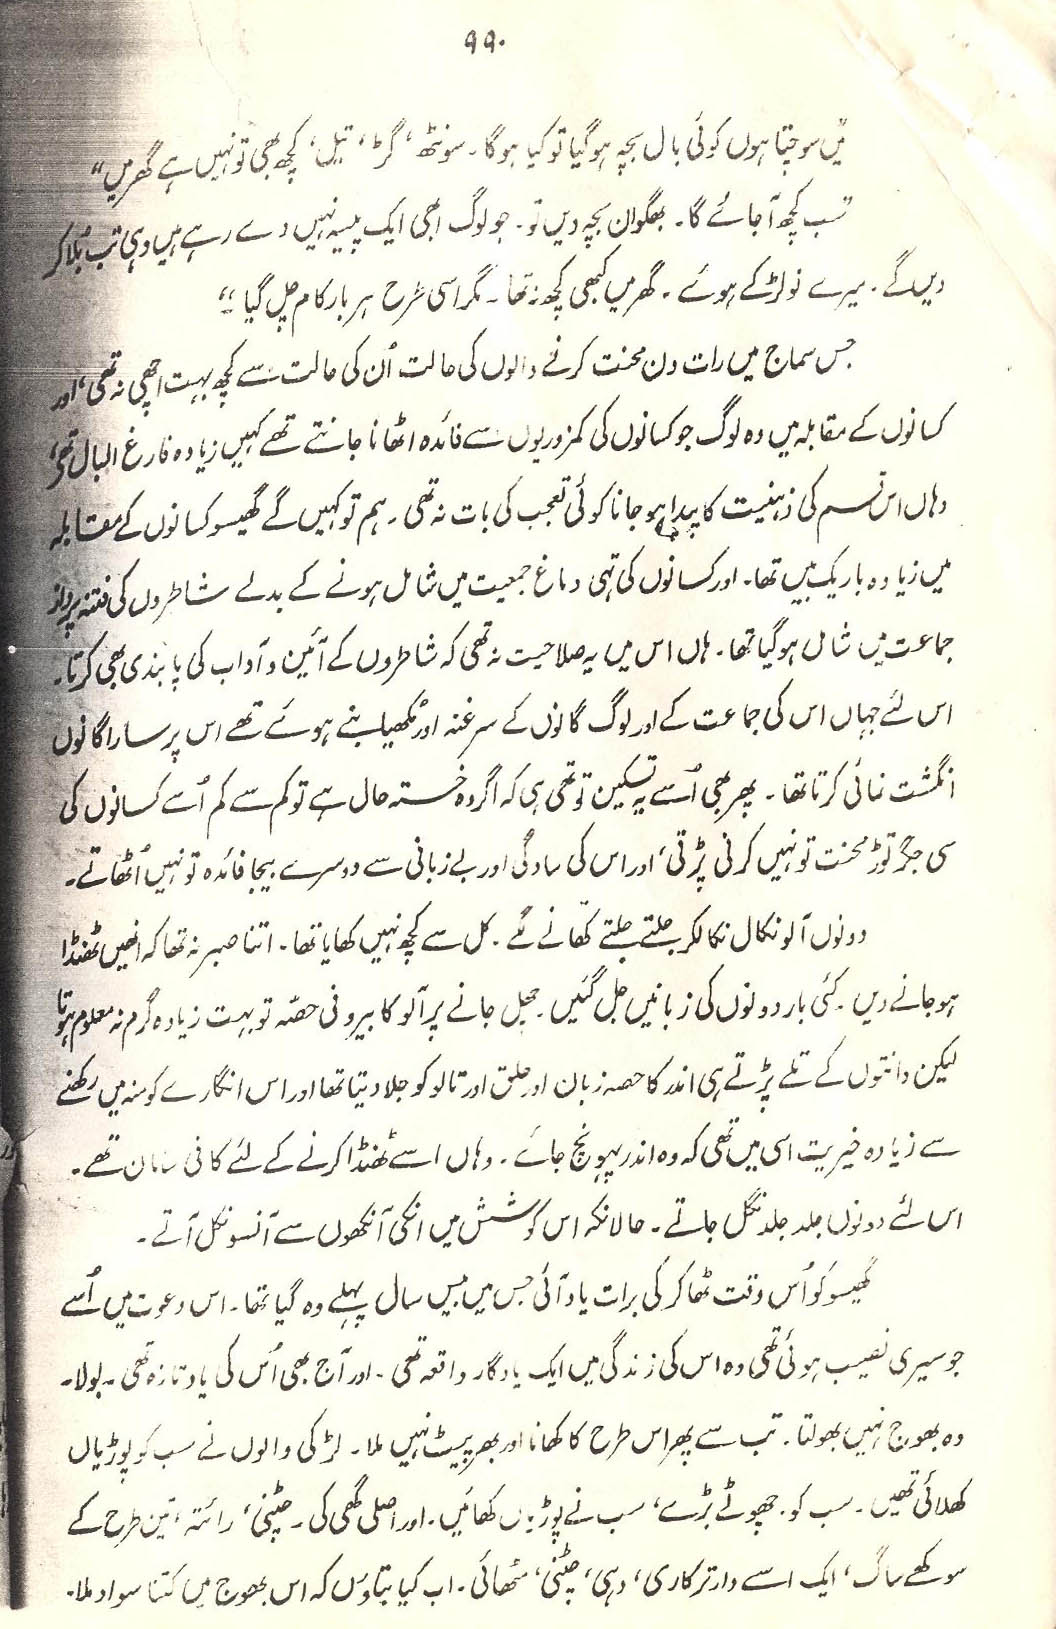 ۹۹۰
میں سوچتا ہوں کوئی بال بچہ ہوگیا تو کیا ہوگا۔ سونٹھ، گڑ، تیل، کچھ بھی تو نہیں ہے گھر میں"
"سب کچھ آجائے گا۔ بھگوان بچہ دیں تو۔ جو لوگ ابھی ایک پیسہ نہیں دے رہے ہیں وہی تب بُلا کر
دیں گے۔ میرے نو لڑکے ہوئے۔ گھر میں کبھی کچھ نہ تھا۔ مگر اسی طرح ہر بار کام چل گیا"
جس سماج میں رات دن محنت کرنے والوں کی حالت اُن کی حالت سے کچھ بہت اچھی نہ تھی، اور
کسانوں کے مقابلہ میں وہ لوگ جو کسانوں کی کمزوریوں سے فائدہ اٹھانا جانتے تھے کہیں زیادہ فارغ البال تھے،
وہاں اس قسم کی ذہنیت کا پیدا ہو جانا کوئی تعجب کی بات نہ تھی۔ ہم تو کہیں گے گھیسو کسانوں کے مقابلہ
میں زیادہ باریک بیں تھا۔ اور کسانوں کی تہی دماغ جمعیت میں شامل ہونے کے بدلے شاطروں کی فتنہ پرداز
جماعت میں شامل ہوگیا تھا۔ ہاں اس میں یہ صلاحیت نہ تھی کہ شاطروں کے آئین و آداب کی پابندی بھی کرتا۔
اس لئے جہاں اس کی جماعت کے اور لوگ گانوں کے سرغنہ اور مُکھیا بنے ہوئے تھے اس پر سارا گانوں
انگشت نمائی کرتا تھا۔ پھر بھی اُسے یہ تسکین تو تھی ہی کہ اگر وہ خستہ حال ہے تو کم سے کم اُسے کسانوں کی
سی جگر توڑ محنت تو نہیں کرنی پڑتی، اور اس کی سادگی اور بے زبانی سے دوسرے بیجا فائدہ تو نہیں اُٹھاتے۔
دونوں آلو نکال نکالکر جلتے جلتے کھانے لگے۔ کل سے کچھ نہیں کھایا تھا۔ اتنا صبر نہ تھا کہ انھیں ٹھنڈا
ہو جانے دیں۔ کئی بار دونوں کی زبانیں جل گئیں۔ چھل جانے پر آلو کا بیرونی حصّہ تو بہت زیادہ گرم نہ معلوم ہوتا
لیکن دانتوں کے تلے پڑتے ہی اندر کا حصہ زبان اور حلق اور تالو کو جلا دیتا تھا اور اس انگارے کو منہ میں رکھنے
سے زیادہ خیریت اسی میں تھی کہ وہ اندر پہونچ جائے۔ وہاں اسے ٹھنڈا کرنے کے لئے کافی سامان تھے۔
اس لئے دونوں جلد جلد نگل جاتے۔ حالانکہ اس کوشش میں انکی آنکھوں سے آنسو نکل آتے۔
گھیسو کو اُس وقت ٹھاکر کی برات یاد آئی جس میں بیس سال پہلے وہ گیا تھا۔ اس دعوت میں اُسے
جو سیری نصیب ہوئی تھی وہ اس کی زندگی میں ایک یادگار واقعہ تھی۔ اور آج بھی اُس کی یاد تازہ تھی۔ بولا۔
وہ بھوج نہیں بھولتا۔ تب سے پھر اس طرح کا کھانا اور بھر پیٹ نہیں ملا۔ لڑکی والوں نے سب کو پوڑیاں
کھلائی تھیں۔ سب کو۔ چھوٹے بڑے، سب نے پوڑیاں کھائیں۔ اور اصلی گھی کی۔ چٹنی، رائتہ، تین طرح کے
سوکھے ساگ، ایک اسے دار ترکاری، دہی، چٹنی، مٹھائی۔ اب کیا بتاوں کہ اس بھوج میں کتنا سواد ملا۔